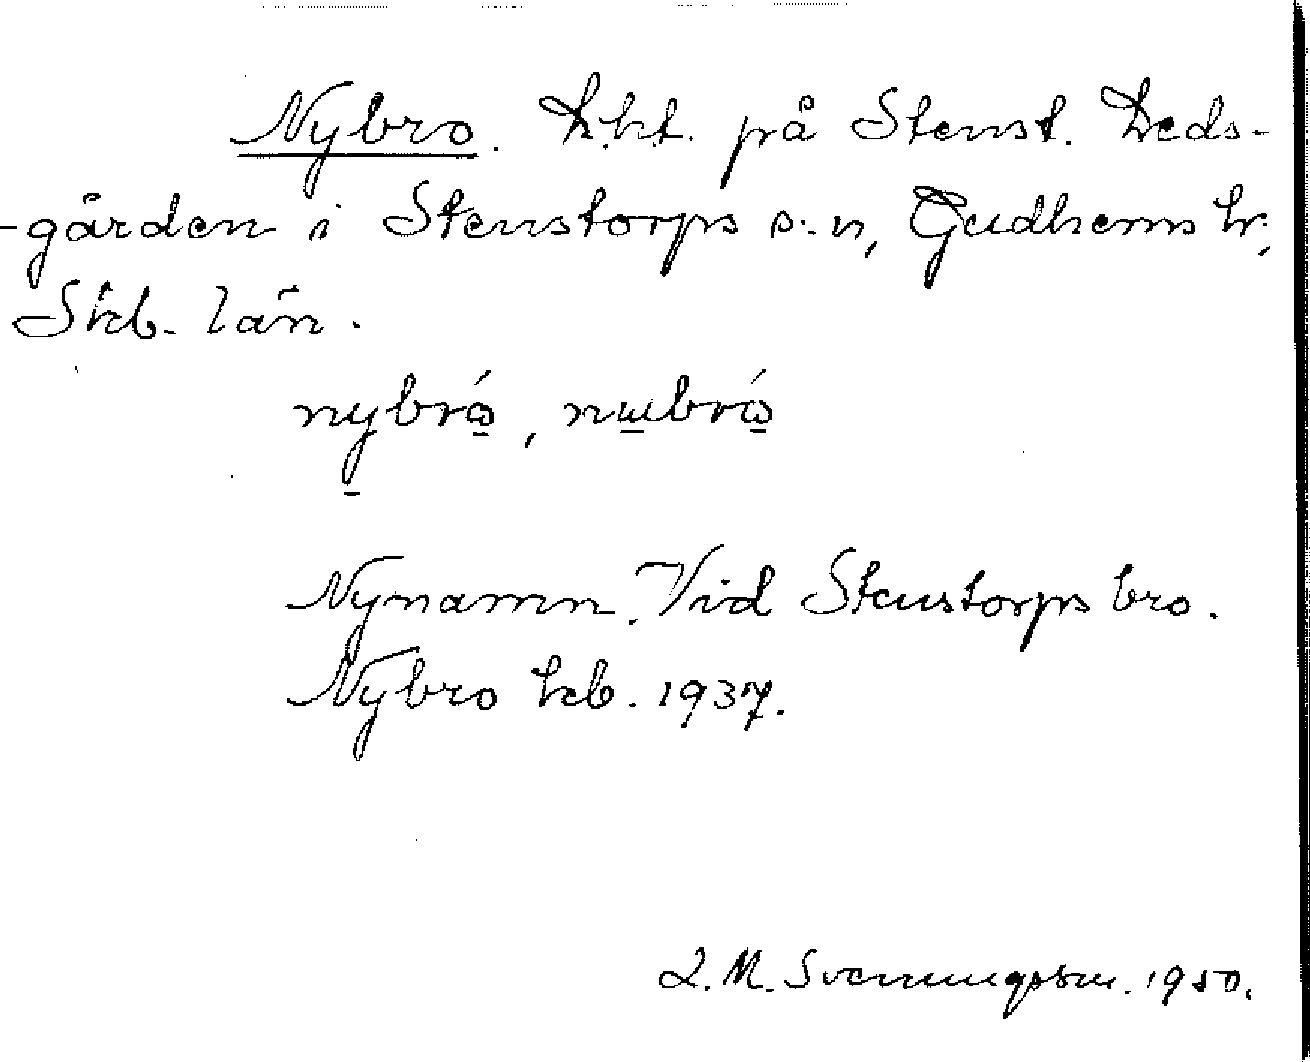 Nybro. Lht. på Stenst. Leds-
-gården i Stenstorps s:n, Gudhems hr,
Skb. län.
nybrɷ́, nɯbrɷ́
Nynamn. Vid Stenstorps bro.
Nybro kb. 1937.
L. M. Svenungsson. 1950.